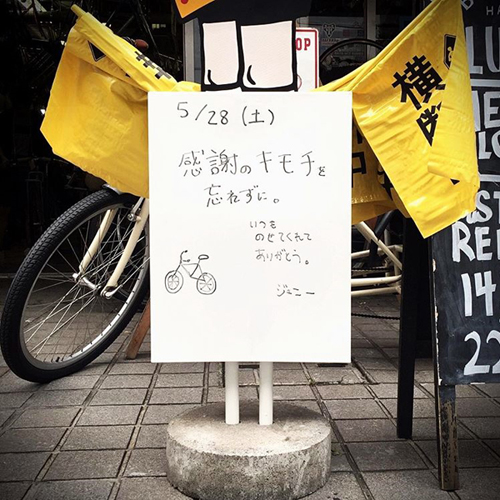 OP
横断
5/28(土)
感謝のキモチを
忘れずに。
いつも
のせてくれて
ありがとう。
ジェニー
LU
RE
14
22